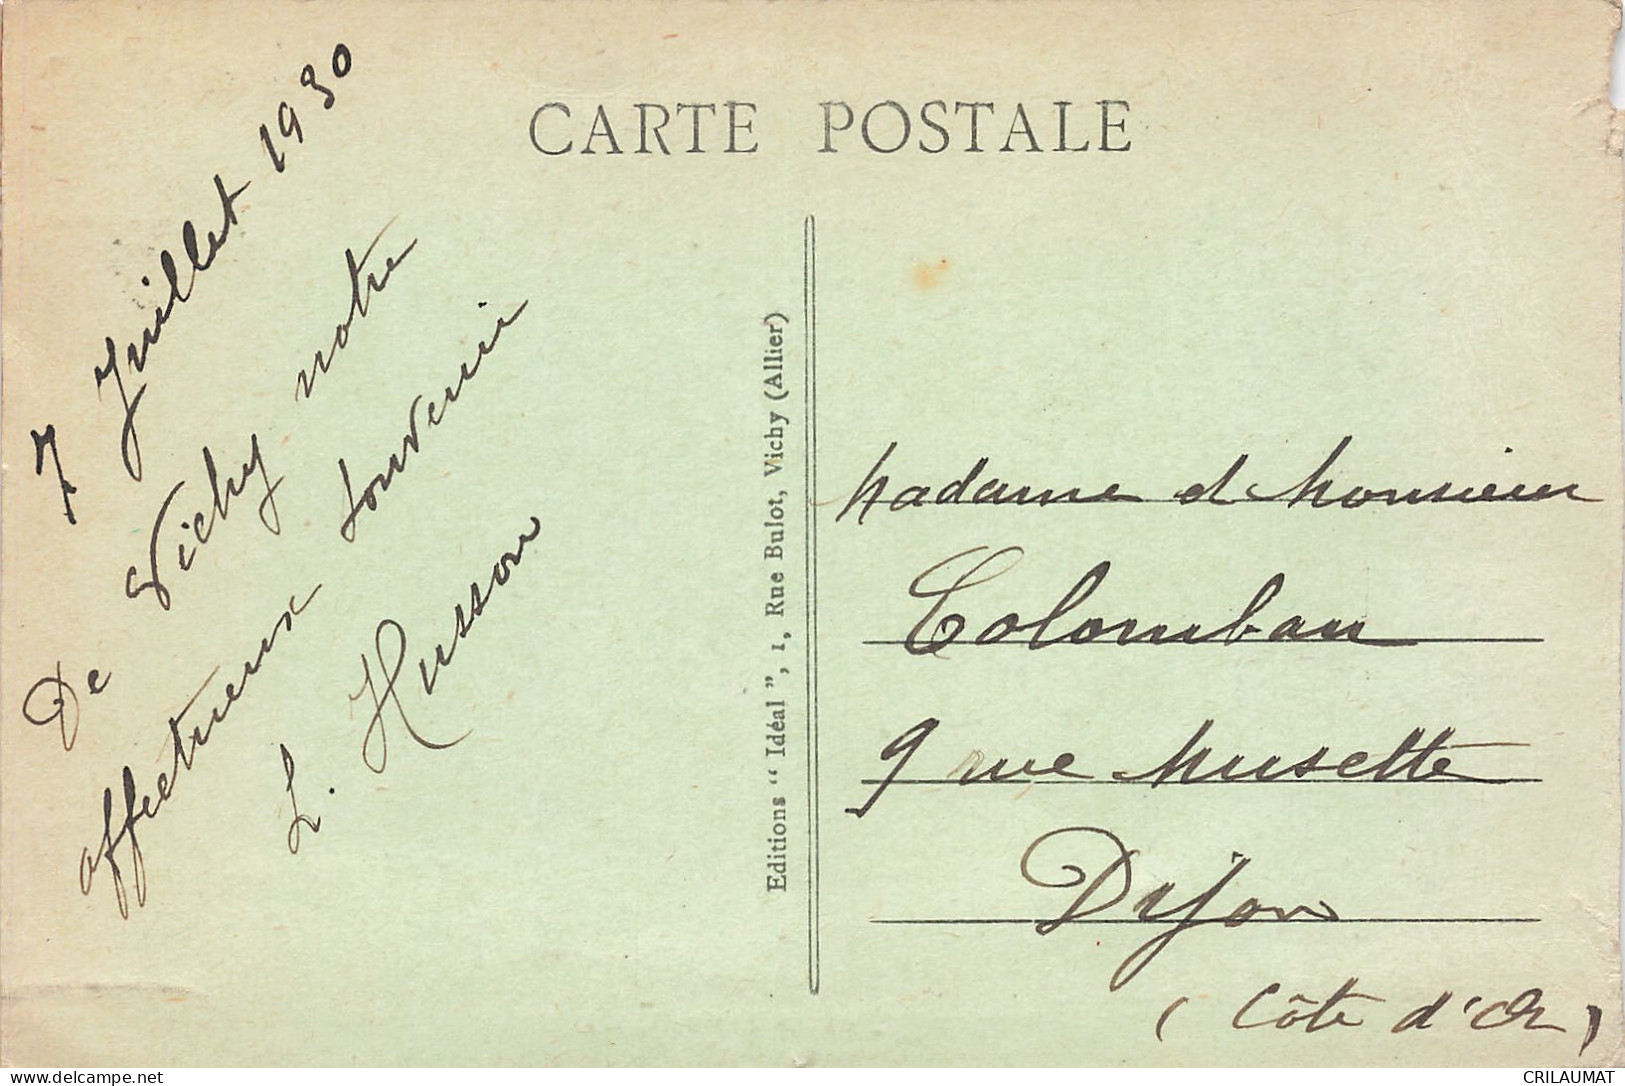 CARTE POSTALE
7 Juillet 1930
De Vichy notre
affectueux souvenir
L. Husson
Editions "Idéal", 1, Rue Bulot, Vichy (Allier)
Madame et Monsieur
Colomban
9 rue Musette
Dijon
(Côte d'Or)
CRILAUMAT